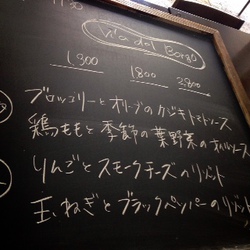 11:30
Vita del Borgo
1,300
1,800
2,800
ブロッコリーとオリーブのカジキトマトソース
鶏ももと季節の葉野菜のオイルソース
りんごとスモークチーズのリゾット
玉ねぎとブラックペッパーのリゾット